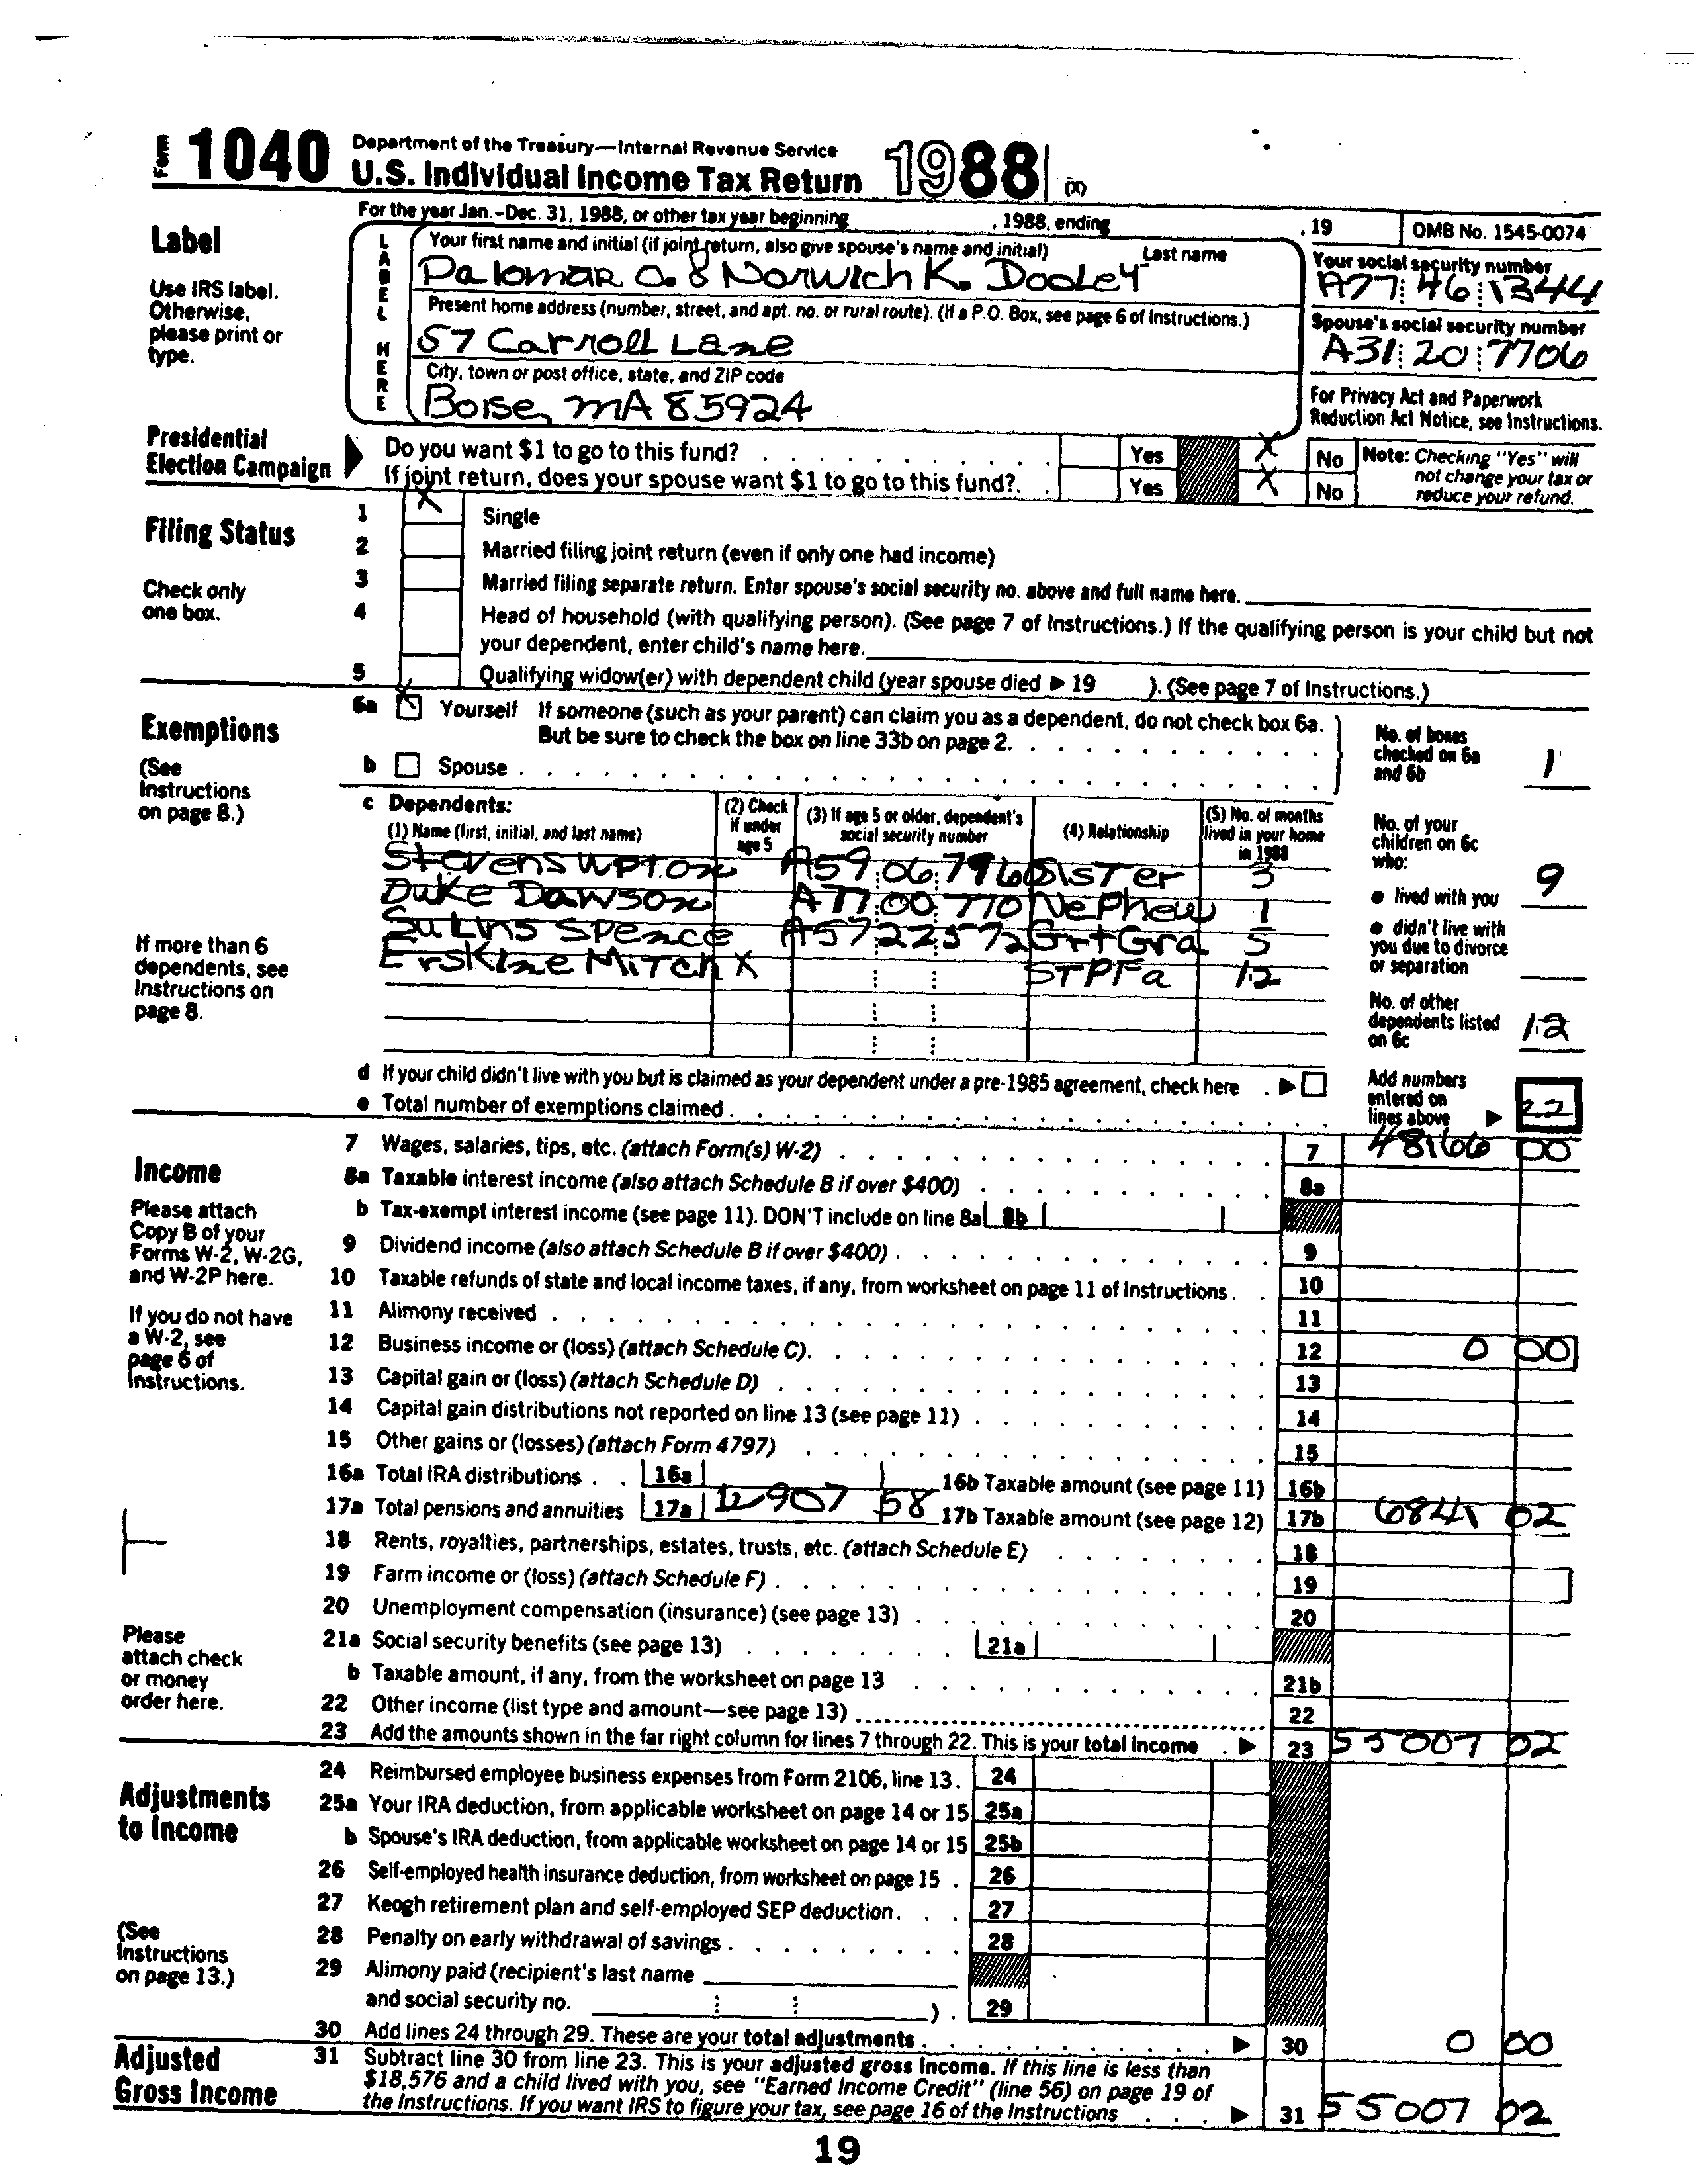 Form 1040 Department of the Treasury—Internal Revenue Service
U.S. Individual Income Tax Return 1988 (X)
For the year Jan.-Dec. 31, 1988, or other tax year beginning , 1988, ending , 19 OMB No. 1545-0074
Label
Use IRS label.
Otherwise,
please print or
type.
LABEL HERE
Your first name and initial (if joint return, also give spouse's name and initial) Last name
Palomar O. & Norwich K. Dooley
Your social security number
A77 46 1344
Present home address (number, street, and apt. no. or rural route). (If a P.O. Box, see page 6 of Instructions.)
57 Carroll Lane
Spouse's social security number
A31 20 7706
City, town or post office, state, and ZIP code
Boise, MA 85924
For Privacy Act and Paperwork
Reduction Act Notice, see Instructions.
Presidential
Election Campaign
Do you want $1 to go to this fund? Yes X No
If joint return, does your spouse want $1 to go to this fund? Yes X No
Note: Checking "Yes" will
not change your tax or
reduce your refund.
Filing Status
Check only
one box.
1 X Single
2 Married filing joint return (even if only one had income)
3 Married filing separate return. Enter spouse's social security no. above and full name here.
4 Head of household (with qualifying person). (See page 7 of Instructions.) If the qualifying person is your child but not
your dependent, enter child's name here.
5 Qualifying widow(er) with dependent child (year spouse died ▶ 19 ). (See page 7 of Instructions.)
Exemptions
(See
Instructions
on page 8.)
If more than 6
dependents, see
Instructions on
page 8.
6a X Yourself If someone (such as your parent) can claim you as a dependent, do not check box 6a.
But be sure to check the box on line 33b on page 2.
b Spouse
No. of boxes
checked on 6a
and 6b 1
c Dependents:
(1) Name (first, initial, and last name)
(2) Check
if under
age 5
(3) If age 5 or older, dependent's
social security number
(4) Relationship
(5) No. of months
lived in your home
in 1988
Stevens Upton A59 06 7960 Sister 3
Duke Dawson A77 00 770 Nephew 1
Sulins Spence A57 22 572 Grt Gra 5
Erskine Mitch X STPFa 12
No. of your
children on 6c
who:
● lived with you 9
● didn't live with
you due to divorce
or separation
No. of other
dependents listed
on 6c 12
d If your child didn't live with you but is claimed as your dependent under a pre-1985 agreement, check here ▶
e Total number of exemptions claimed
Add numbers
entered on
lines above ▶ 22
Income
Please attach
Copy B of your
Forms W-2, W-2G,
and W-2P here.
If you do not have
a W-2, see
page 6 of
Instructions.
Please
attach check
or money
order here.
7 Wages, salaries, tips, etc. (attach Form(s) W-2) 7 48166 00
8a Taxable interest income (also attach Schedule B if over $400) 8a
b Tax-exempt interest income (see page 11). DON'T include on line 8a 8b
9 Dividend income (also attach Schedule B if over $400) 9
10 Taxable refunds of state and local income taxes, if any, from worksheet on page 11 of Instructions 10
11 Alimony received 11
12 Business income or (loss) (attach Schedule C) 12 0 00
13 Capital gain or (loss) (attach Schedule D) 13
14 Capital gain distributions not reported on line 13 (see page 11) 14
15 Other gains or (losses) (attach Form 4797) 15
16a Total IRA distributions 16a 16b Taxable amount (see page 11) 16b
17a Total pensions and annuities 17a 12907 58 17b Taxable amount (see page 12) 17b 6841 02
18 Rents, royalties, partnerships, estates, trusts, etc. (attach Schedule E) 18
19 Farm income or (loss) (attach Schedule F) 19
20 Unemployment compensation (insurance) (see page 13) 20
21a Social security benefits (see page 13) 21a
b Taxable amount, if any, from the worksheet on page 13 21b
22 Other income (list type and amount—see page 13) 22
23 Add the amounts shown in the far right column for lines 7 through 22. This is your total income ▶ 23 55007 02
Adjustments
to Income
(See
Instructions
on page 13.)
24 Reimbursed employee business expenses from Form 2106, line 13. 24
25a Your IRA deduction, from applicable worksheet on page 14 or 15 25a
b Spouse's IRA deduction, from applicable worksheet on page 14 or 15 25b
26 Self-employed health insurance deduction, from worksheet on page 15 26
27 Keogh retirement plan and self-employed SEP deduction 27
28 Penalty on early withdrawal of savings 28
29 Alimony paid (recipient's last name
and social security no. ) 29
30 Add lines 24 through 29. These are your total adjustments ▶ 30 0 00
Adjusted
Gross Income
31 Subtract line 30 from line 23. This is your adjusted gross income. If this line is less than
$18,576 and a child lived with you, see "Earned Income Credit" (line 56) on page 19 of
the Instructions. If you want IRS to figure your tax, see page 16 of the Instructions ▶ 31 55007 02
19